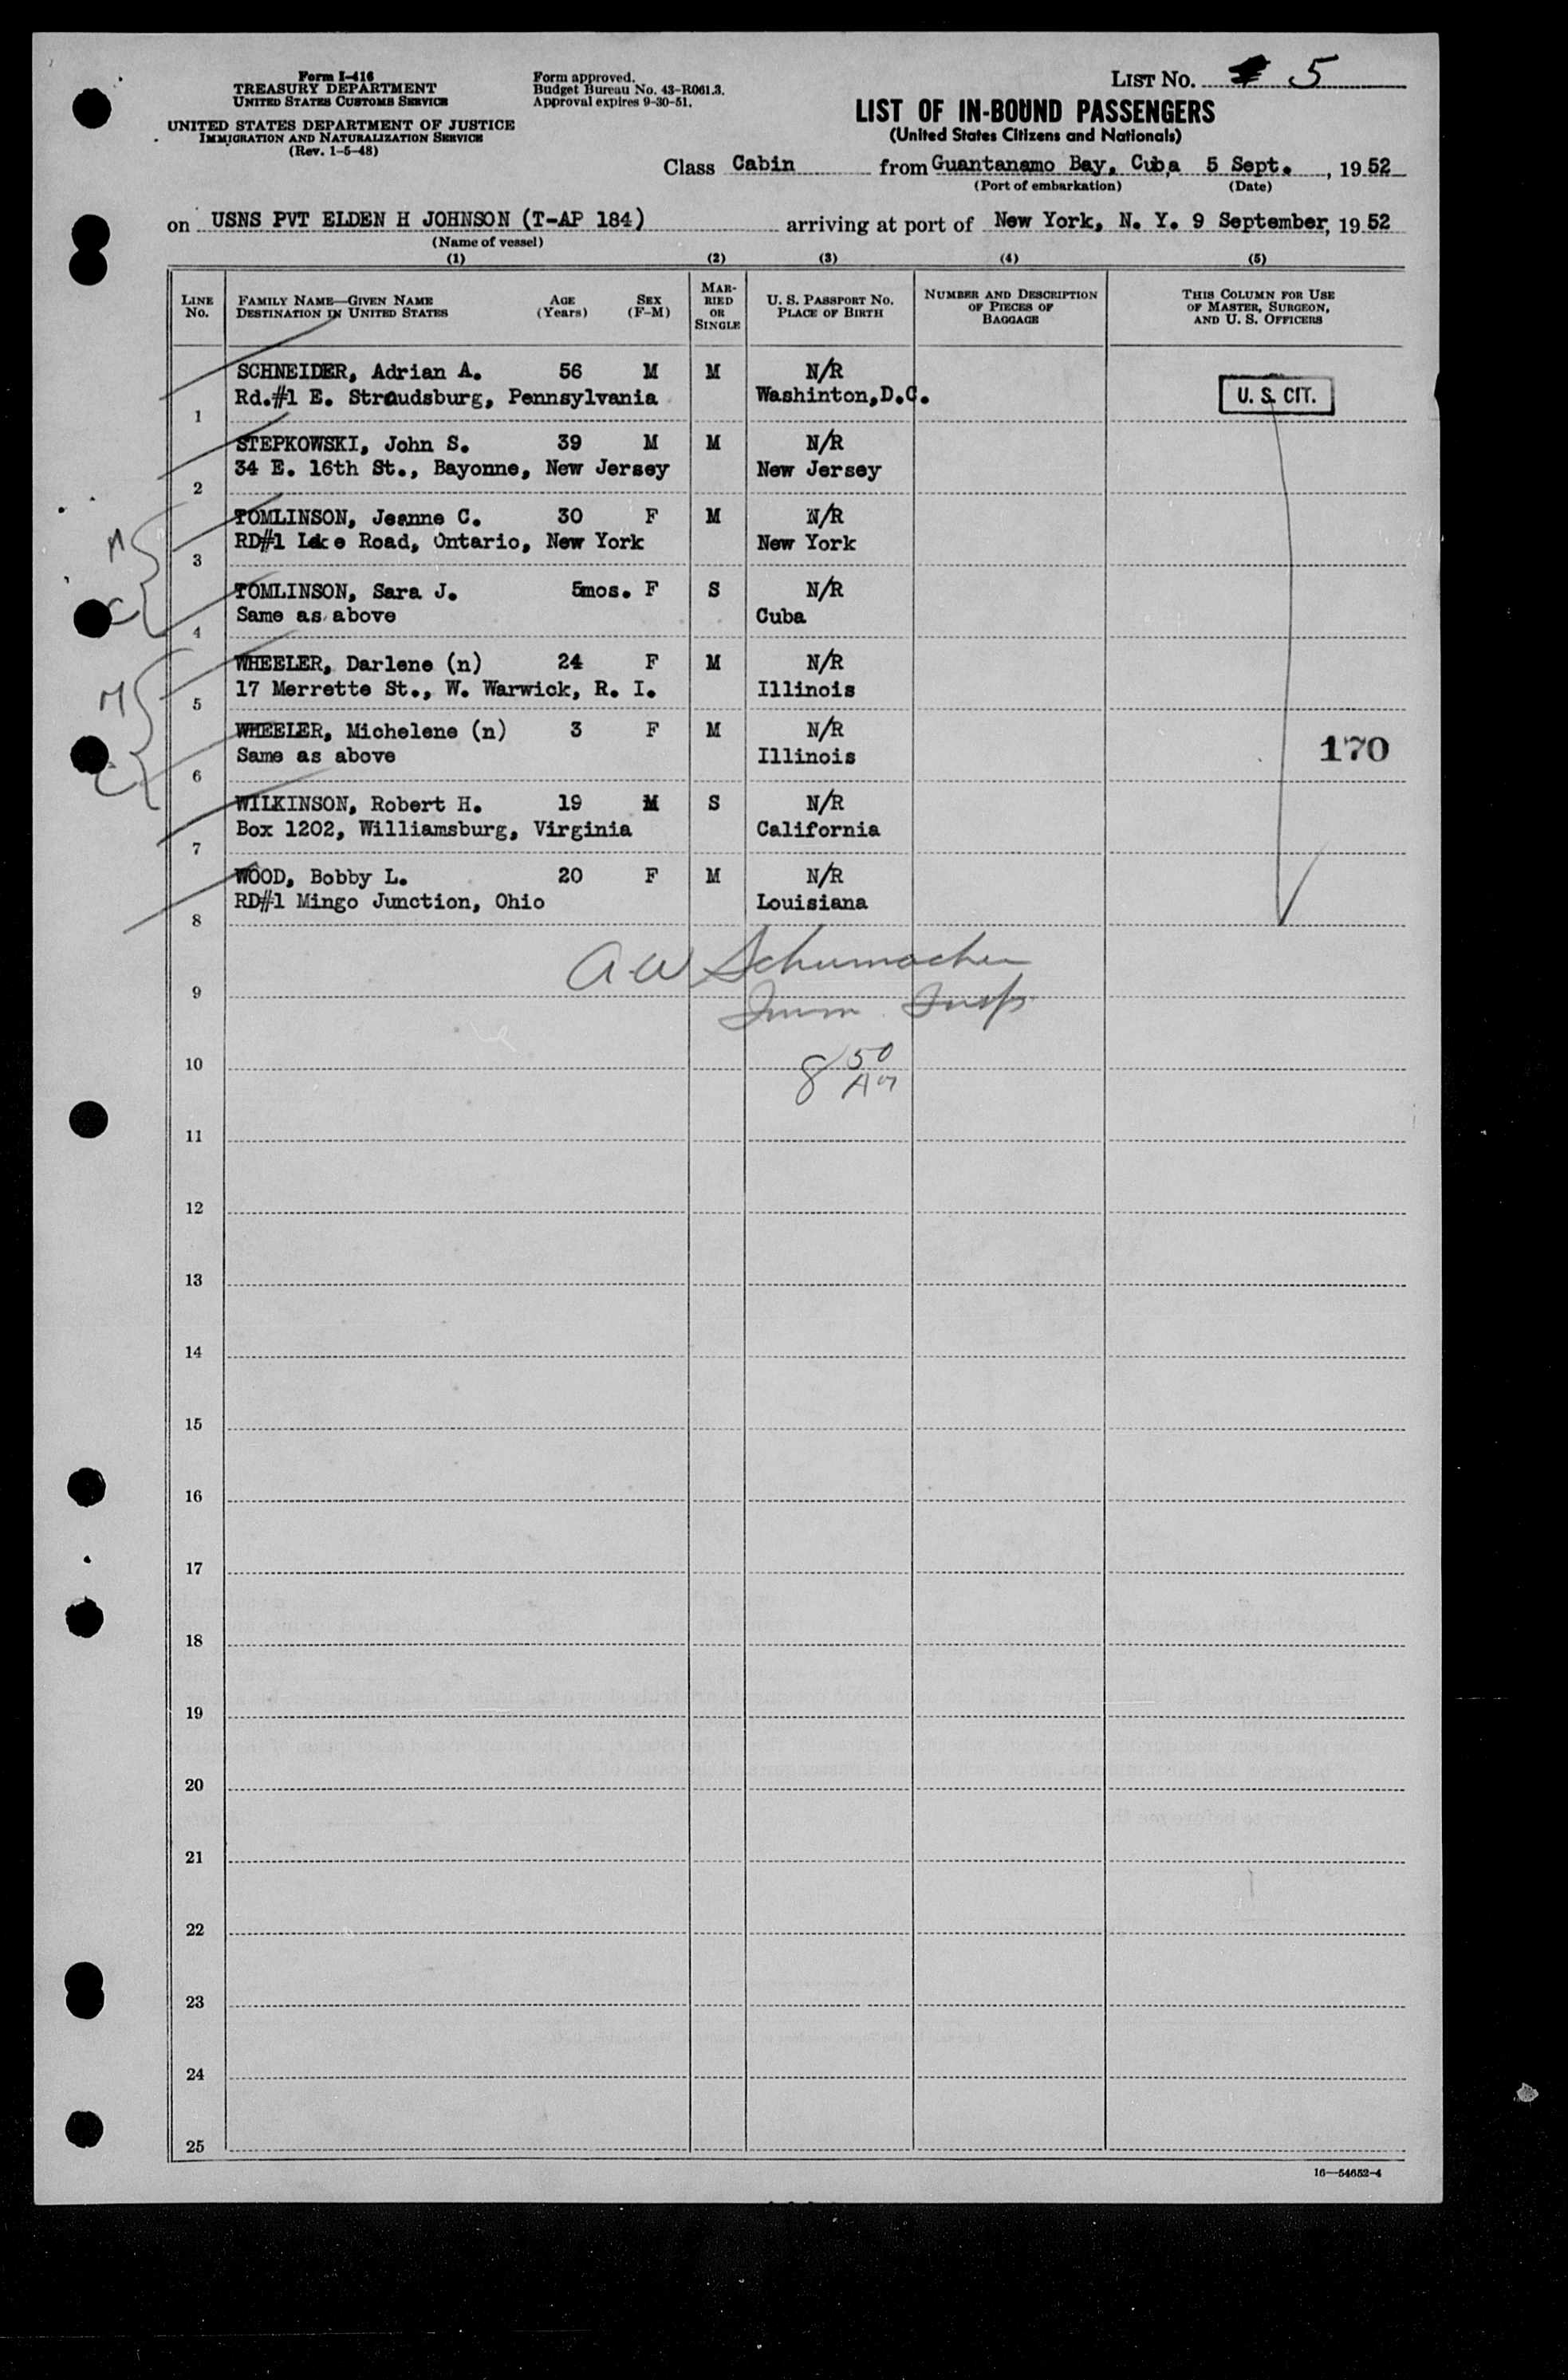 Form I-416
TREASURY DEPARTMENT
UNITED STATES CUSTOMS SERVICE
UNITED STATES DEPARTMENT OF JUSTICE
IMMIGRATION AND NATURALIZATION SERVICE
(Rev. 1-5-48)
Form approved.
Budget Bureau No. 43-R061.3.
Approval expires 9-30-51.
LIST No. 5
LIST OF IN-BOUND PASSENGERS
(United States Citizens and Nationals)
Class Cabin from Guantanamo Bay, Cuba 5 Sept. , 19 52
(Port of embarkation) (Date)
on USNS PVT ELDEN H JOHNSON (T-AP 184) arriving at port of New York, N. Y. 9 September, 19 52
(Name of vessel)
(1) (2) (3) (4) (5)
LINE No. FAMILY NAME—GIVEN NAME DESTINATION IN UNITED STATES AGE (Years) SEX (F-M) MARRIED OR SINGLE U. S. PASSPORT NO. PLACE OF BIRTH NUMBER AND DESCRIPTION OF PIECES OF BAGGAGE THIS COLUMN FOR USE OF MASTER, SURGEON, AND U. S. OFFICERS
SCHNEIDER, Adrian A. 56 M M N/R
1 Rd.#1 E. Stroudsburg, Pennsylvania Washinton,D.C. U. S. CIT.
STEPKOWSKI, John S. 39 M M N/R
2 34 E. 16th St., Bayonne, New Jersey New Jersey
M TOMLINSON, Jeanne C. 30 F M N/R
3 RD#1 Lake Road, Ontario, New York New York
C TOMLINSON, Sara J. 5mos. F S N/R
4 Same as above Cuba
M WHEELER, Darlene (n) 24 F M N/R
5 17 Merrette St., W. Warwick, R. I. Illinois
C WHEELER, Michelene (n) 3 F M N/R
6 Same as above Illinois 170
WILKINSON, Robert H. 19 M S N/R
7 Box 1202, Williamsburg, Virginia California
WOOD, Bobby L. 20 F M N/R
8 RD#1 Mingo Junction, Ohio Louisiana
A W Schumacher
9 Imm. Insp
10 8 50 AM
11
12
13
14
15
16
17
18
19
20
21
22
23
24
25
16—54652-4